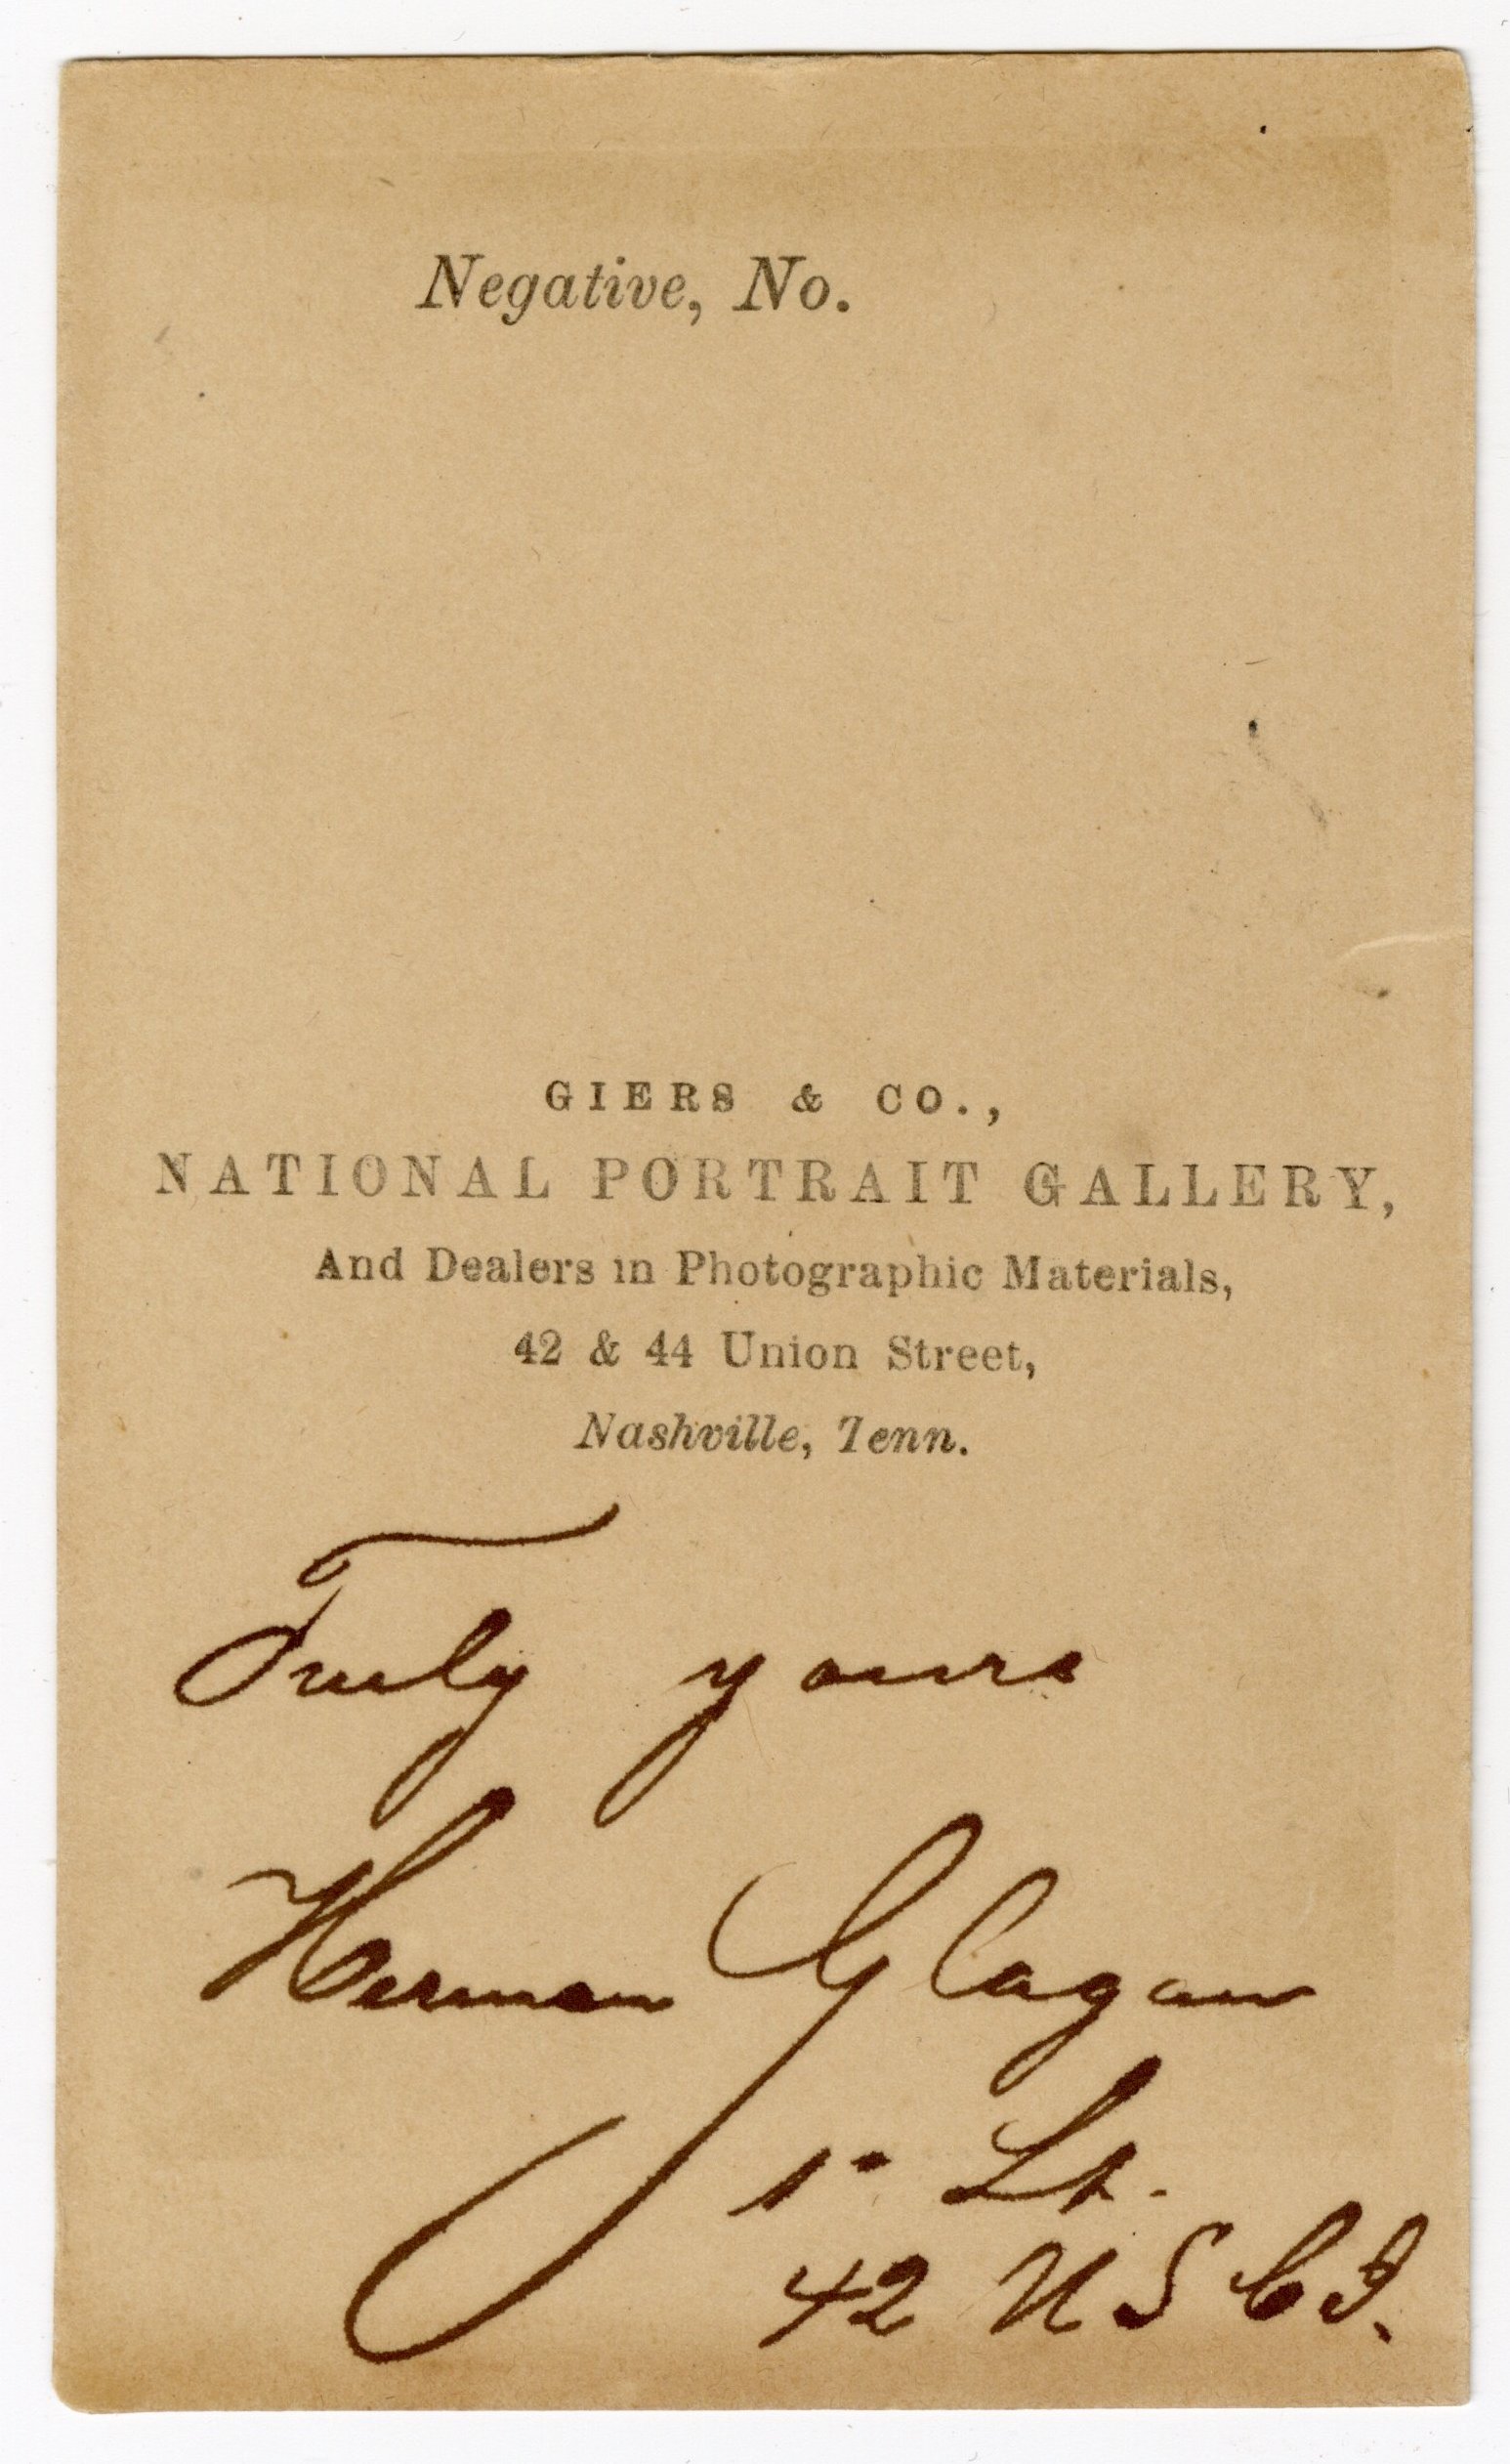 Negative, No.
GIERS & CO.,
NATIONAL PORTRAIT GALLERY,
And Dealers in Photographic Materials,
42 & 44 Union Street,
Nashville, Tenn.
Truly yours
Herman Glagau
1st Lt.
42 U S C I.